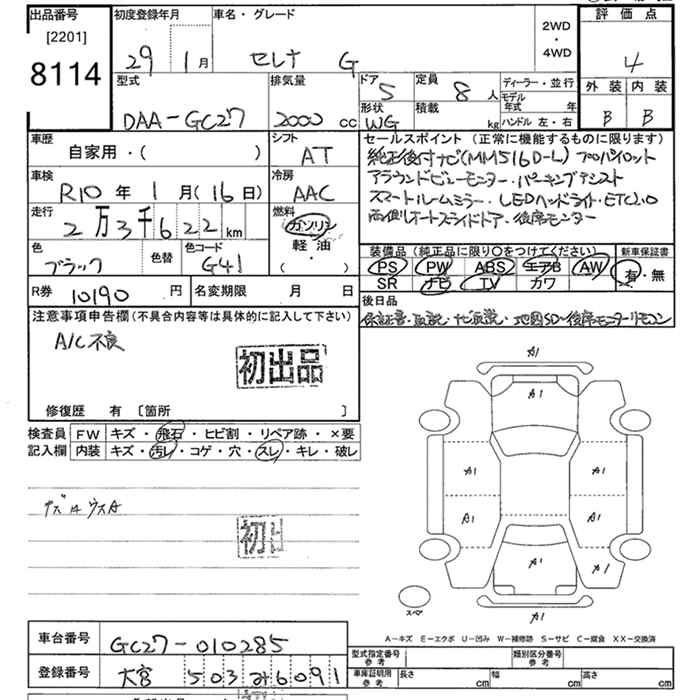 出品番号
[2201]
8114
初度登録年月
29 1 月
車名・グレード
セレナ G
2WD
・
4WD
評価点
4
外装 内装
B B
型式
DAA-GC27
排気量
2000 cc
ドア
5
定員
8 人
形状
WG
積載
kg
ディーラー・並行
モデル年式 年
ハンドル 左・右
車歴
自家用・( )
シフト
AT
車検
R10 年 1 月(16 日)
冷房
AAC
走行
2 万 3 千 6 2 2 km
燃料
ガソリン
軽油
( ・ )
色
ブラック
色替
色コード
G41
セールスポイント(正常に機能するものに限ります)
純正後付ナビ(MM516D-L) プロパイロット
アラウンドビューモニター・パーキングアシスト
スマートルームミラー・LEDヘッドライト・ETC2.0
両側オートスライドドア・後席モニター
装備品(純正品に限り〇をつけてください)
PS PW ABS エアB AW
SR ナビ TV カワ
新車保証書
有・無
R券 10190 円
名変期限 月 日
後日品
保証書・取説・ナビ取説・地図SD・後席モニターリモコン
注意事項申告欄(不具合内容等は具体的に記入して下さい)
A/C不良
初出品
修復歴 有 [箇所 ]
検査員記入欄
FW キズ・飛石・ヒビ割・リペア跡・×要
内装 キズ・汚レ・コゲ・穴・スレ・キレ・破レ
初出
A1
A1
A1
A1
A1
A1
A1
A1
A1
スペア
A-キズ E-エクボ U-凹み W-補修跡 S-サビ C-腐食 XX-交換済
車台番号
GC27-010285
登録番号
大宮 503 み 6091
型式指定番号
参考
類別区分番号
参考
車庫証明用
参考
長さ cm
幅 cm
高さ cm